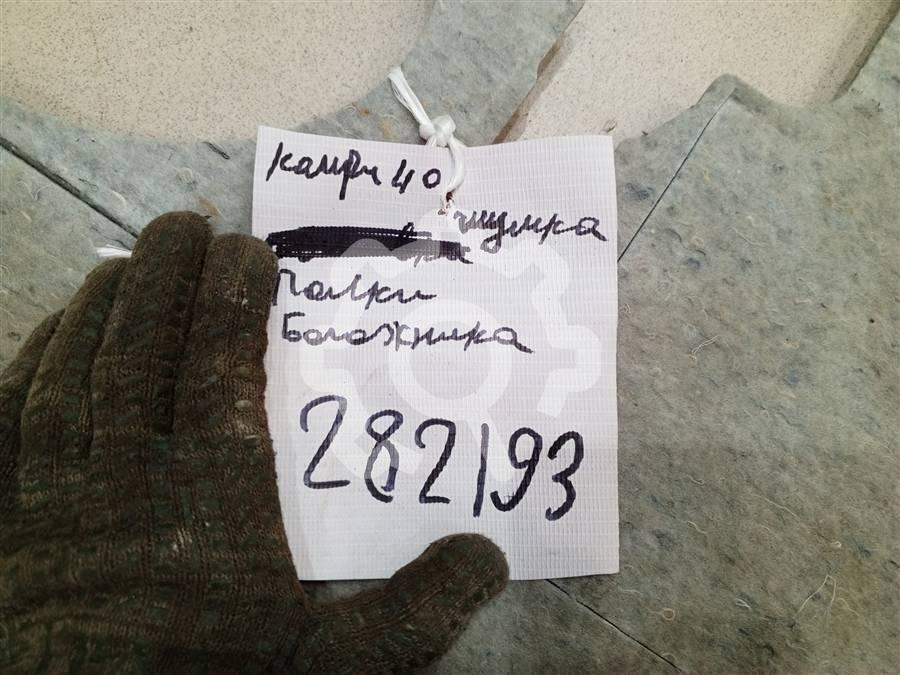 Камри 40
шумка
Полки
Богажника
282193